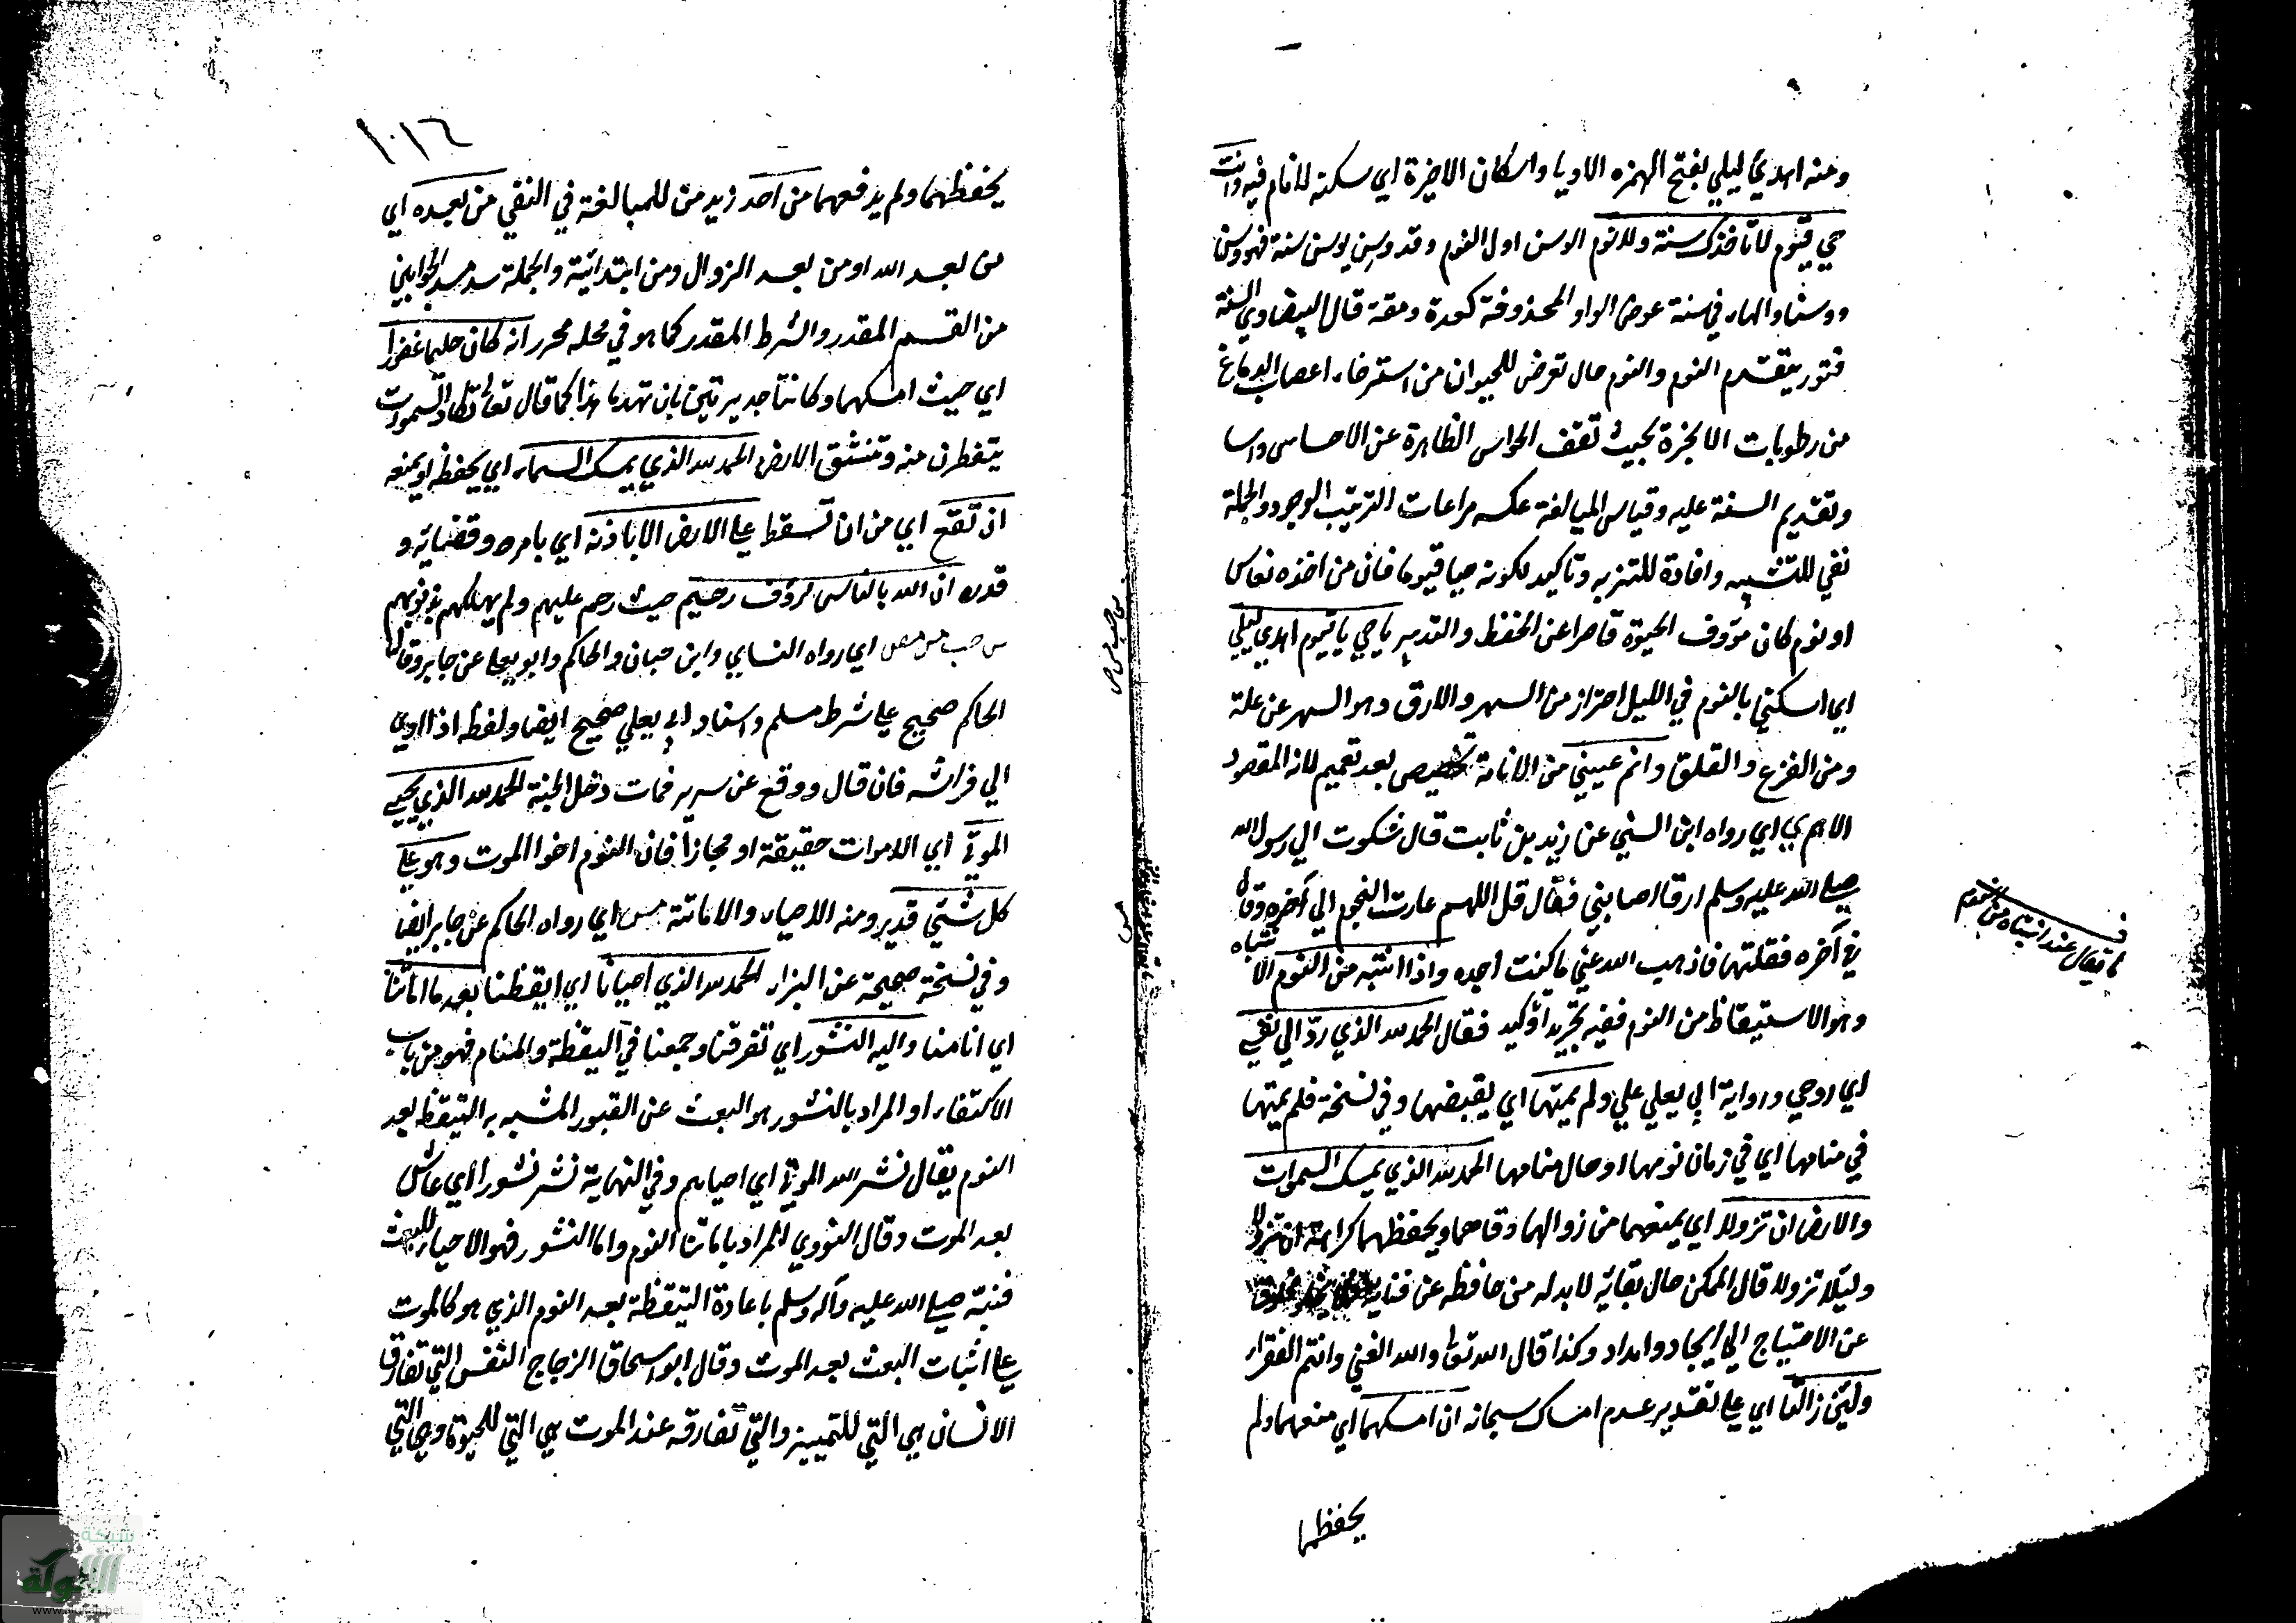 ومنه اهدئ ليلي بفتح الهمزه الاوليا واسكان الاخيرة اي سكنه لانام فيه وانت
حي قيوم لا تاخذك سنة ولا نوم الوسن اول النوم وقد وسن يوسن سنة فهو وسن
ووسنان والهاء في سنة عوض الواو المحذوفة كعدة ومقة قال البيضاوي السنة
فتور يتقدم النوم والنوم حال تعرض للحيوان من استرخاء اعصاب الدماغ
من رطوبات الابخرة بحيث تقف الحواس الظاهرة عن الاحساس راسا
وتقديم السنة عليه وقياس المبالغة عكسه مراعات الترتيب الوجود والجملة
نفي للتشبيه وافادة للتنزيه وتاكيد لكونه حيا قيوما فان من اخذه نعاس
او نوم كان مؤوف الحيوة قاصرا عن الحفظ والتدبير يا حي يا قيوم اهدي ليلي
اي اسكني بالنوم في الليل احتراز من السهر والارق وهو السهر عن علة
ومن الفزع والقلق وانم عيني من الانامة تخصيص بعد تعميم لانه المقصود
الاهم ي اي رواه ابن السني عن زيد بن ثابت قال شكوت الي رسول الله
صلى الله عليه وسلم ارقا اصابني فقال قل اللهم غارت النجوم الي آخره وقال
في آخره فقلتها فاذهب الله عني ما كنت اجده واذا انتبه من النوم الانتباه
وهو الاستيقاظ من النوم ففيه تجريد او تاكيد فقال الحمد لله الذي رد الي نفسي
اي روحي ورواية ابي يعلي علي ولم يمتها اي يقبضها وفي نسخة فلم يمتها
في منامها اي في زمان نومها او حال منامها الحمد لله الذي يمسك السموات
والارض ان تزولا اي يمنعهما من زوالهما وقاهما ويحفظهما كراهة ان تزولا
وليلا تزولا قال الممكن حال بقائه لا بد له من حافظه عن فنايه
عن الاحتياج الي ايجاد وامداد وكذا قال الله تعا والله الغني وانتم الفقراء
ولئن زالتا اي على تقدير عدم امساك سبحانه ان امسكهما اي منعهما ولم
يحفظهما
ما يقال عند انتباه من النوم
س حب مس ص
مس
١٠١٦
يحفظهما ولم يدفعهما من احد زيد من للمبالغة في النفي من بعده اي
من بعد الله او من بعد الزوال ومن ابتدائية والجملة سد مسد الجوابين
من القسم المقدر والشرط المقدر كما هو في محله محرر انه كان حليما غفورا
اي حيث امسكهما وكانتا جديرتين بان تهدا هذا كما قال تعالى تكاد السموات
يتفطرن منه وتنشق الارض الحمد لله الذي يمسك السماء اي يحفظه او يمنعه
ان تقع اي من ان تسقط على الارض الا باذنه اي بامره وقضائه و
قدره ان الله بالناس لرؤف رحيم حيث رحم عليهم ولم يهلكهم بذنوبهم
س حب مس ص اي رواه النسايي وابن حبان والحاكم وابو يعلى عن جابر وقال
الحاكم صحيح على شرط مسلم واسناد ابي يعلي صحيح ايضا ولفظه اذا اوي
الي فراشه فان قال ووقع عن سريره فمات دخل الجنة الحمد لله الذي يحيي
الموتى اي الاموات حقيقة او مجازا فان النوم اخوا الموت وهو على
كل شئي قدير ومنه الاحياء والاماتة مس اي رواه الحاكم عن جابر ايضا
وفي نسخة صحيحة عن البزار الحمد لله الذي احيانا اي ايقظنا بعد ما اماتنا
اي انامنا واليه النشور اي تفرقنا وجمعنا في اليقظة والمنام فهو من باب
الاكتفاء او المراد بالنشور هو البعث عن القبور المشبه به التيقظ بعد
النوم يقال نشر الله الموتى اي احياهم وفي النهاية نشر نشورا اي عاش
بعد الموت وقال النووي المراد باماتنا النوم واما النشور فهو الاحياء للبعث
فنبه صلى الله عليه وآله وسلم باعادة التيقظة بعد النوم الذي هو كالموت
على اثبات البعث بعد الموت وقال ابو اسحاق الزجاج النفس التي تفارق
الانسان هي التي للتمييز والتي تفارقه عند الموت هي التي للحيوة وهي التي
شبكة
الألوكة
www.alukah.net